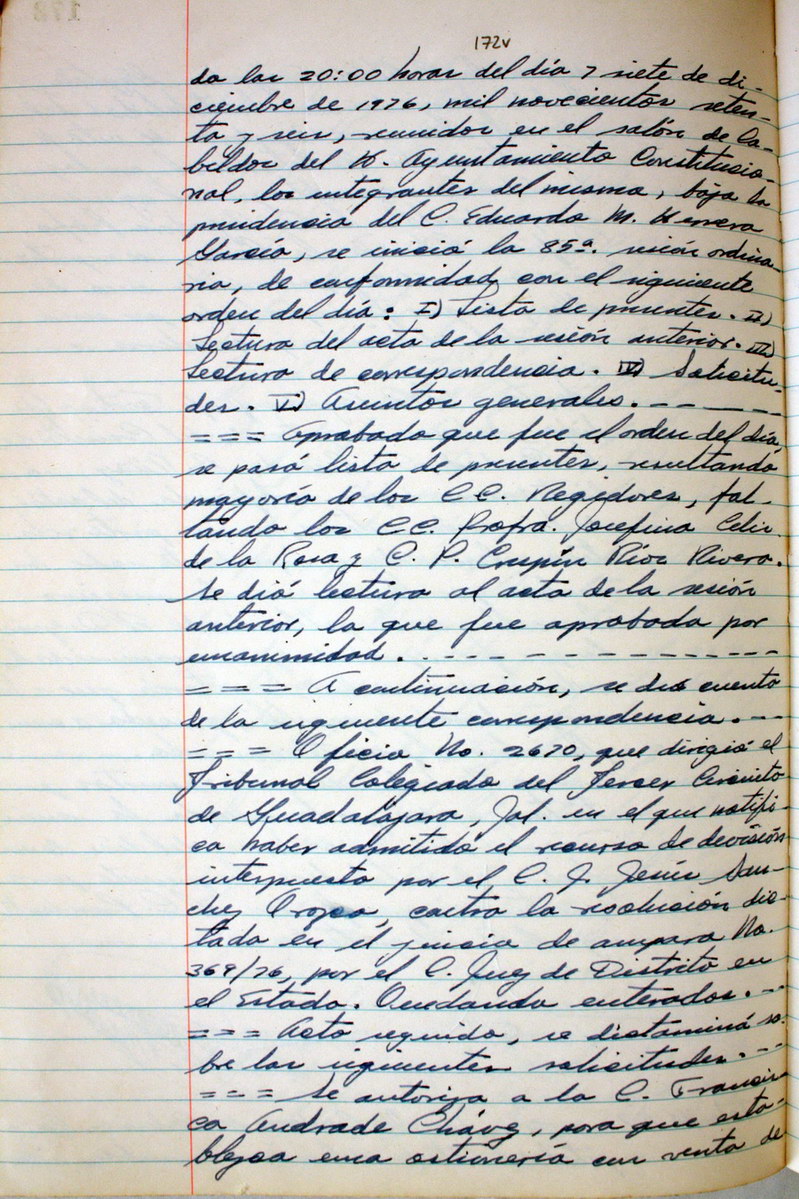 172v
do las 20:00 horas del día 7 siete de di-
ciembre de 1976, mil novecientos seten-
ta y seis, reunidos en el salón de Ca-
bildos del H. Ayuntamiento Constitucio-
nal, los integrantes del mismo, bajo la
presidencia del C. Eduardo M. Herrera
García, se inició la 85ª. sesión ordina-
ria, de conformidad con el siguiente
orden del día: I) Lista de presentes. II)
Lectura del acta de la sesión anterior. III)
Lectura de correspondencia. IV) Solicitu-
des. V) Asuntos generales. - - - - -
=== Aprobado que fue el orden del día,
se pasó lista de presentes, resultando
mayoría de los CC. Regidores, fal-
tando los CC. Profra. Josefina Celis
de la Rosa y C. P. Crispín Ríos Rivera.
Se dió lectura al acta de la sesión
anterior, la que fue aprobada por
unanimidad. - - - - - - - - - - - - -
=== A continuación, se dió cuenta
de la siguiente correspondencia. - - -
=== Oficio No. 2670, que dirigió el
Tribunal Colegiado del Tercer Circuito
de Guadalajara, Jal. en el que notifi-
ca haber admitido el recurso de devisión
interpuesto por el C. J. Jesús Sán-
chez Orozco, contra la resolución dic-
tada en el juicio de amparo No.
369/76, por el C. Juez de Distrito en
el Estado. Quedando enterados. - - -
=== Acto seguido, se dictaminó so-
bre las siguientes solicitudes. - - -
=== Se autoriza a la C. Francis-
ca Andrade Chávez, para que esta-
blezca una ostionería con venta de